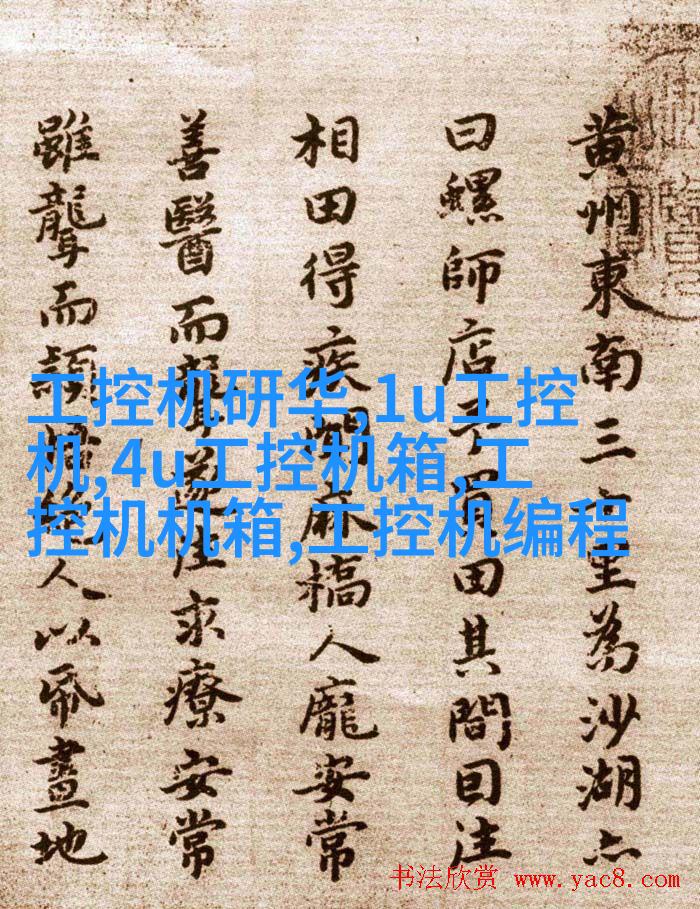 黄州東南三里為沙湖亦
曰螺師店予買田其間因往
相田得疾聞麻橋人龐安常
善醫而聾遂往求療安常
雖聾而穎悟絕人以帋畫地
工控机研华,1u工控
机,4u工控机箱,工
控机机箱,工控机编程
书法欣赏 www.yac8.com